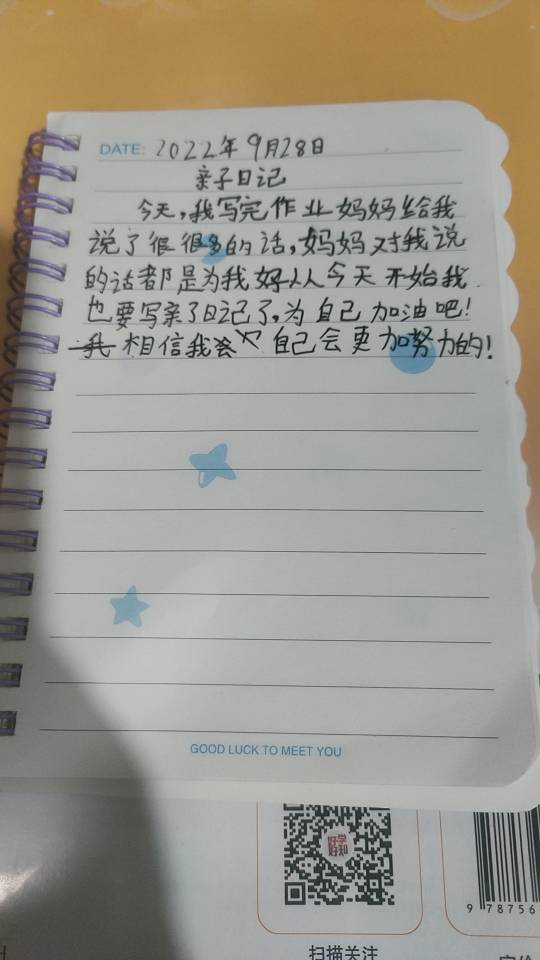 DATE: 2022年9月28日
亲子日记
今天,我写完作业妈妈给我
说了很很多的话,妈妈对我说
的话都是为我好从今天开始我
也要写亲了日记了,为自己加油吧!
我相信我会自己会更加努力的!
GOOD LUCK TO MEET YOU
好学
好知
扫描关注
9 78756